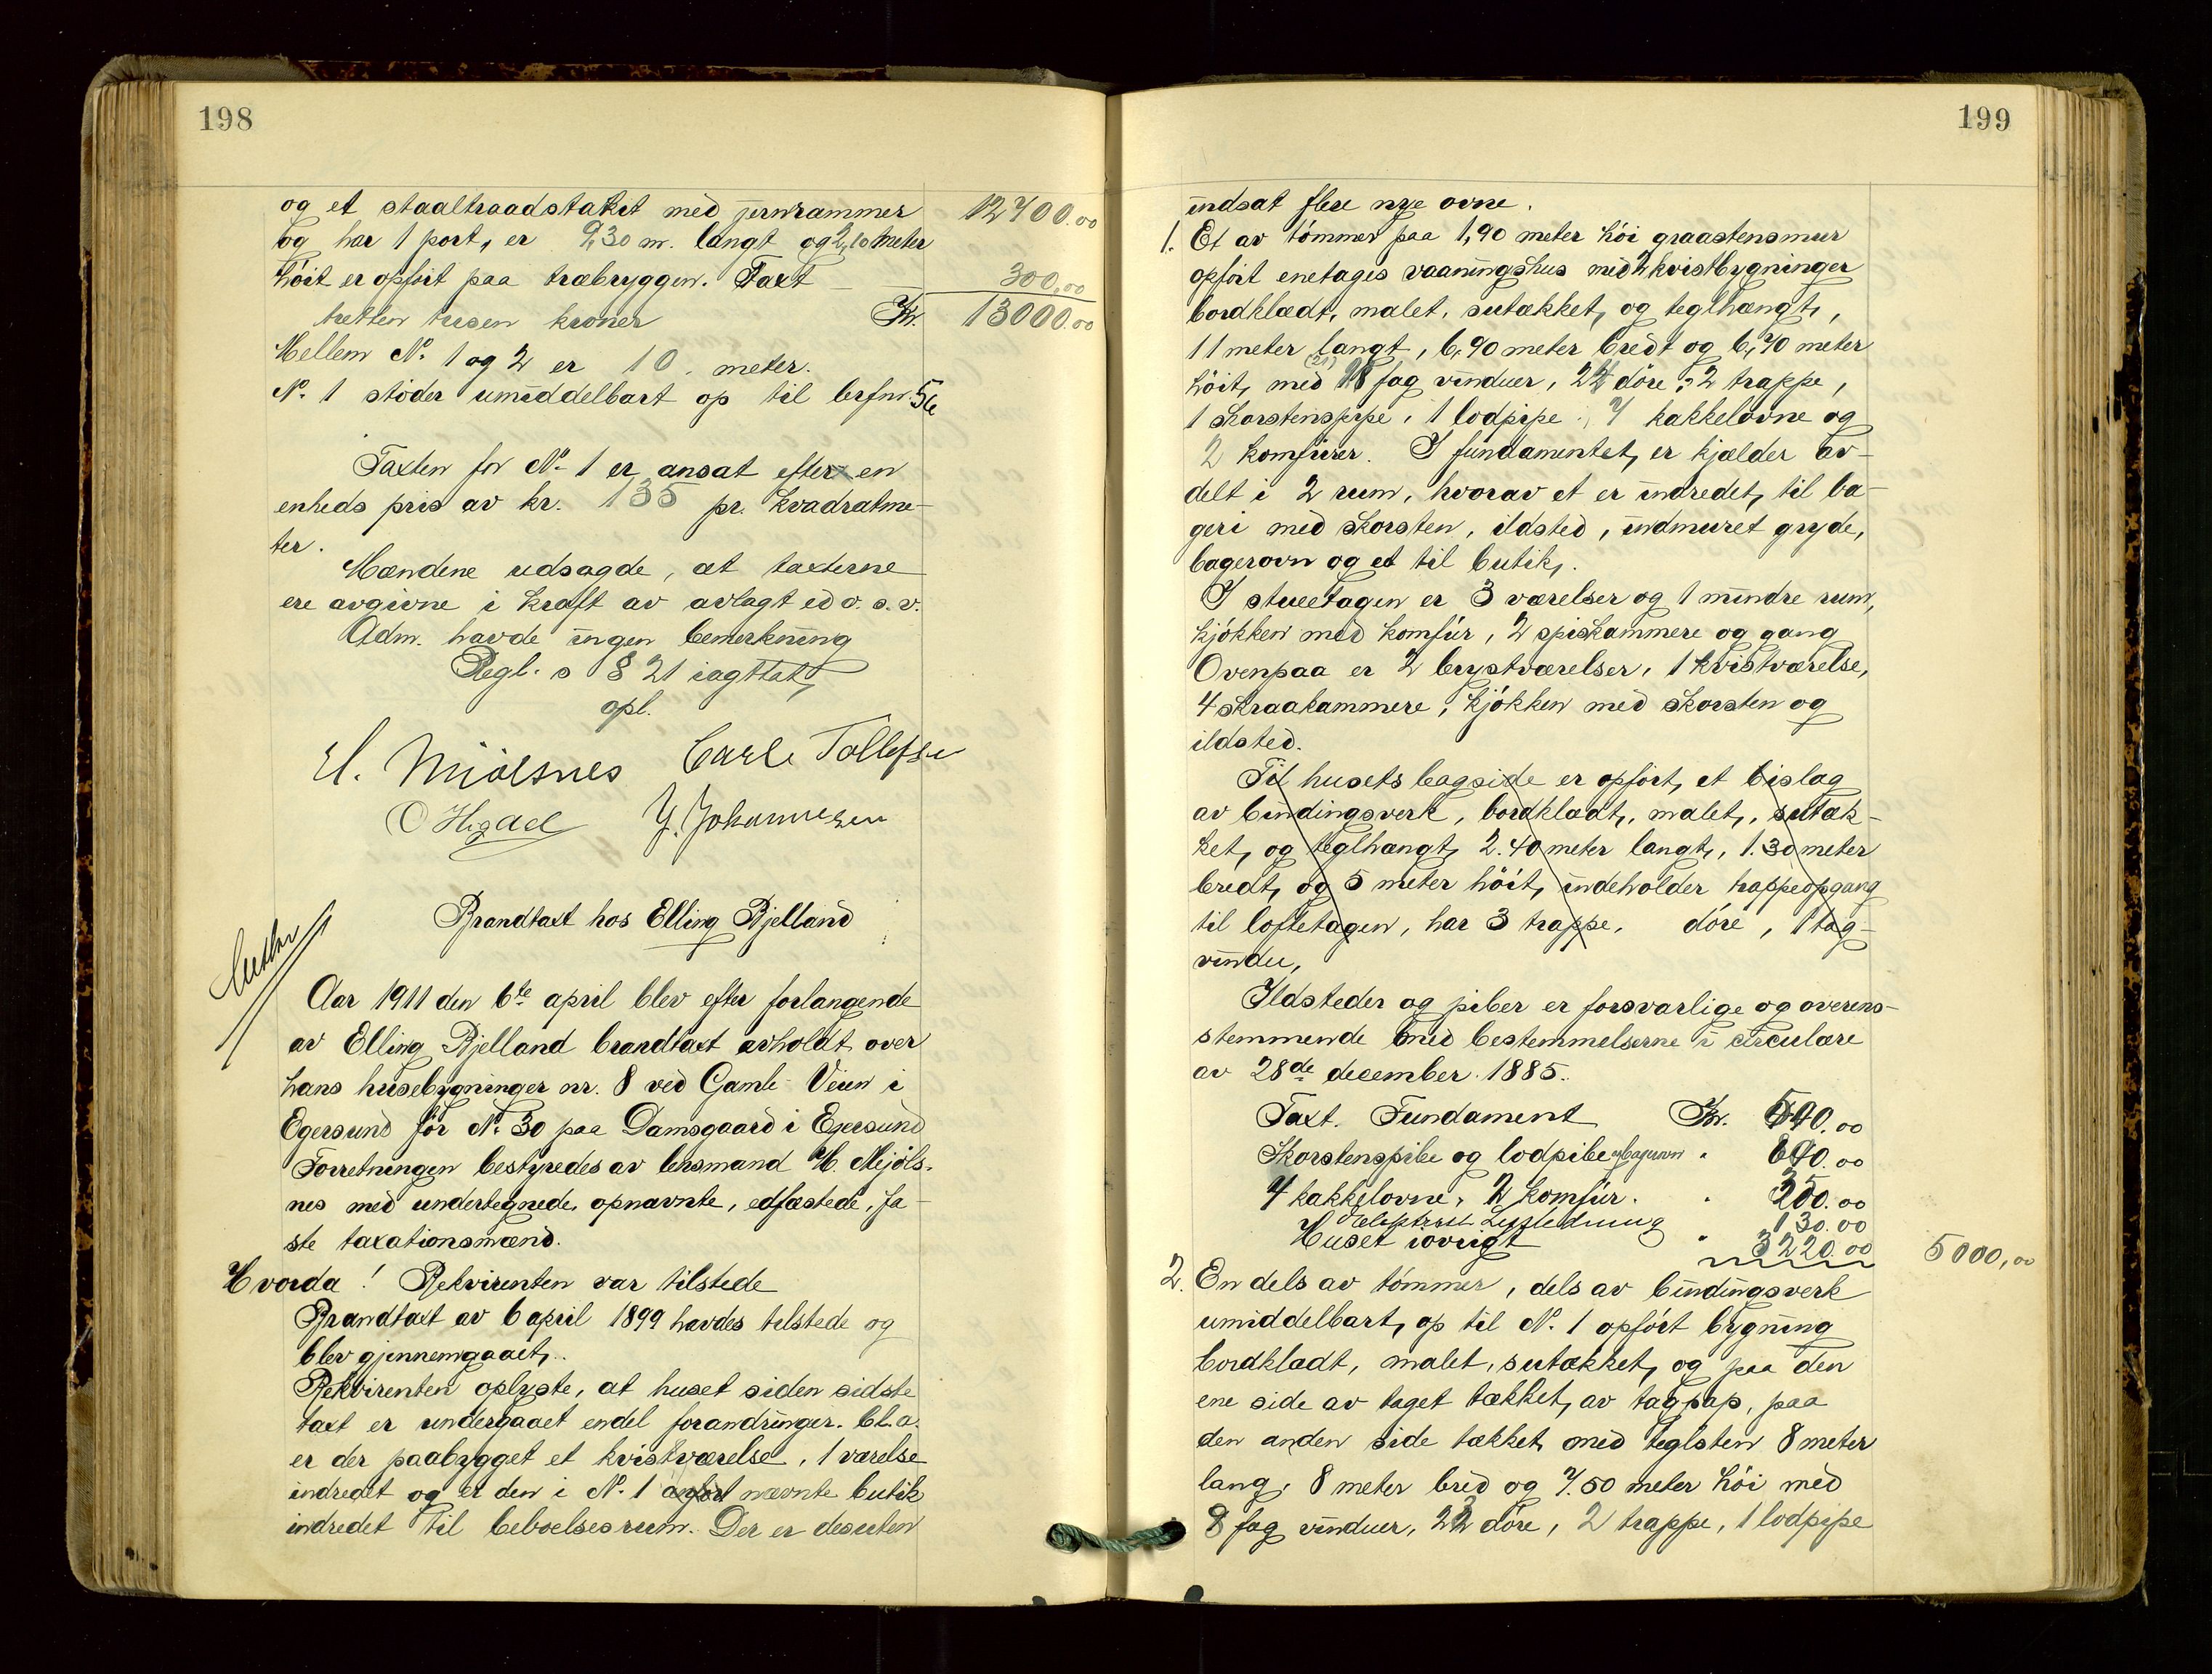 198
og et staaltraadstaket med jernrammer 12700.00
og har 1 port, er 9,30 m. langt og 2,10 meter
höit er opfört paa træbryggen. Taxt 300,00
tretten tusen kroner Kr. 13000.00
Mellem No. 1 og 2 er 10. meter.
No. 1 stöder umiddelbart op til brfnr. 56
Taxten for No. 1 er ansat efter en
enheds pris av kr. 135 pr. kvadratme-
ter.
Mændene udsagde, at taxterne
ere avgivne i kraft av avlagt ed o. s. v.
Adm. havde ingen bemerkning
Regl. s § 21 iagttat,
opl.
H. Mjölsnes Carl Tollefsen
O Hegdal J. Johannesen
Brandtaxt hos Elling Bjelland
Aar 1911 den 6te april blev efter forlangende
av Elling Bjelland brandtaxt avholdt over
hans husebygninger nr. 8 ved Gamle-Veien i
Egersund för No. 30 paa Damsgaard i Egersund
Forretningen bestyredes av lensmand H. Mjöls-
nes med undertegnede, opnævnte, edfæstede, fa-
ste taxationsmænd.
Hvorda! Rekvirenten var tilstede
Brandtaxt av 6 april 1899 havdes tilstede og
blev gjennemgaaet,.
Rekvirenten oplyste, at huset siden sidste
taxt er undergaaet endel forandringer. Bl. a.
er der paabygget et kvistværelse, 1 værelse
indredet og er den i No. 1 anfört nævnte butik
indredet til beboelsesrum. Der er desuten
199
indsat flere nye ovne.
1. Et av tömmer paa 1,90 meter höi graastensmur
opfört enetages vaaningshus med 2 kvistbygninger
bordklædt, malet, sutækket, og teglhængt,
11 meter langt, 6,90 meter bredt og 6,70 meter
höit, med 18 fag vinduer, 24 döre, 2 trappe,
1 skorstenspipe, 1 lodpipe, 7 kakkelovne og
2 komfürer. I fundamentet, er kjælder av-
delt i 2 rum, hvorav et er indredet, til ba-
geri med skorsten, ildsted, indmuret gryde,
bagerovn og et til butik,.
I stueetagen er 3 værelser og 1 mindre rum,
kjökken med komfür, 2 spiskammere og gang
Ovenpaa er 2 brystværelser, 1 kvistværelse,
4 skraakammere, kjökken med skorsten og
ildsted.
Til husets bagside er opfört, et bislag
av bindingsverk, bordklædt,, malet,, sutæk-
ket, og teglhængt, 2.40 meter langt,, 1.30 meter
bredt, og 5 meter höit, indeholder trappeopgang
til loftetagen, har 3 trappe, döre, 1 tag-
vindu,
Ildsteder og piber er forsvarlige og overens-
stemmende med bestemmelserne i circulære
av 28de december 1885.
Taxt. Fundament Kr. 540.00
Skorstenspibe og lodpibe og bagerovn „ 690.00
7 kakkelovne, 2 komfür. „ 350.00
Elektrisk Lysledning 130.00
Huset iövrigt „ 3220.00 5000,00
2. En dels av tömmer, dels av bindingsverk
umiddelbart, op til No. 1 opfört bygning
bordklædt, malet, sutækket, og paa den
ene side av taget tækket, av tagpap, paa
den anden side tækket, med teglsten 8 meter
lang, 8 meter bred og 7.50 meter höi med
8 fag vinduer, 22 döre, 2 trappe, 1 lodpipe